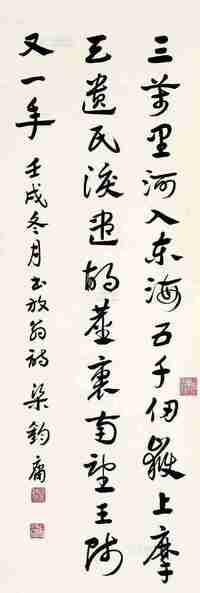 三萬里河入東海五千仞嶽上摩
天遺民淚盡胡塵裏南望王師
又一年 壬戌冬月書放翁詩 梁鈞庸